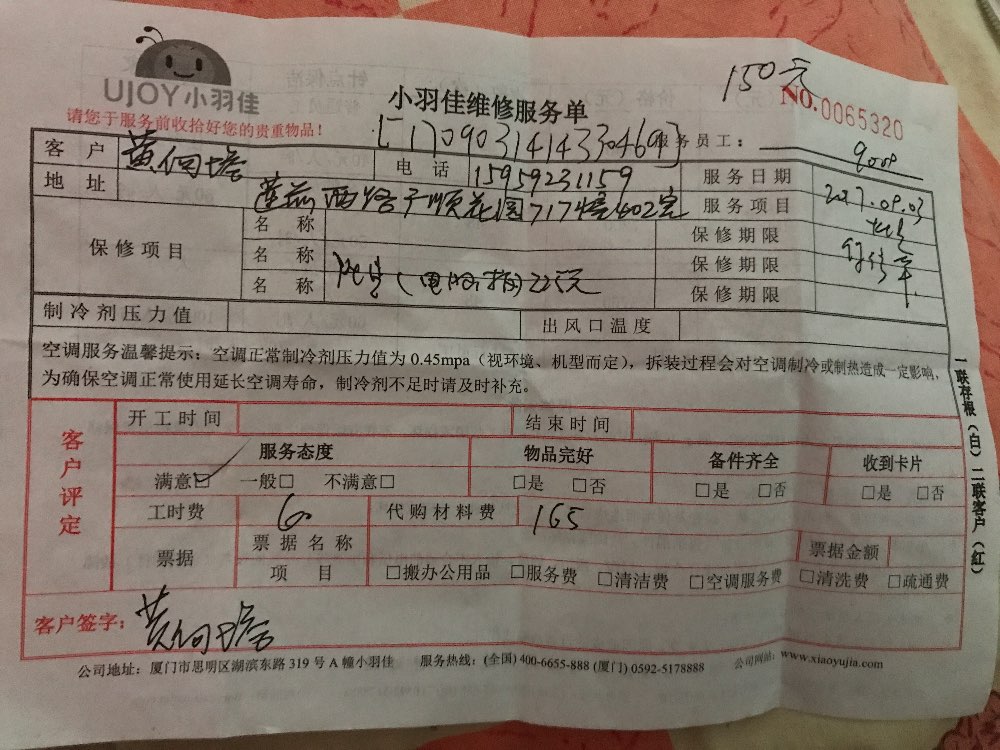 UJOY小羽佳
150元
请您于服务前收拾好您的贵重物品！
小羽佳维修服务单
NO.0065320
服务员工：9008
客户 黄 电话 15959231159 服务日期 2017.09.03
地址 莲 西路 顺花园717幢402室 服务项目
保修项目
名称 保修期限
名称 保修期限
名称 (电脑板)225元 保修期限
制冷剂压力值 出风口温度
空调服务温馨提示：空调正常制冷剂压力值为 0.45mpa（视环境、机型而定），拆装过程会对空调制冷或制热造成一定影响，
为确保空调正常使用延长空调寿命，制冷剂不足时请及时补充。
客户评定
开工时间 结束时间
服务态度 物品完好 备件齐全 收到卡片
满意☑ 一般□ 不满意□ □是 □否 □是 □否 □是 □否
工时费 60 代购材料费 165
票据 票据名称 票据金额
项目 □搬办公用品 □服务费 □清洁费 □空调服务费 □清洗费 □疏通费
客户签字：黄
一联存根（白）二联客户（红）
公司地址：厦门市思明区湖滨东路 319 号 A 幢小羽佳 服务热线：(全国) 400-6655-888 (厦门) 0592-5178888 公司网站：www.xiaoyujia.com